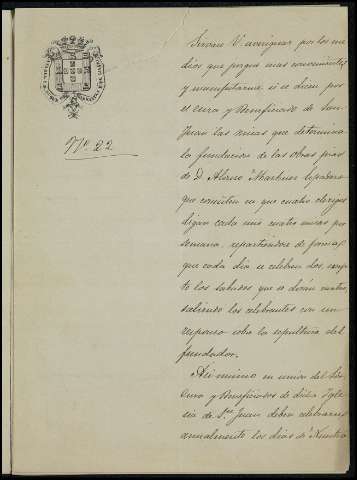 Nº 22
Sirvase V. averiguar por los me
dios que juzgue mas convenientes
y manifestarme si se dicen por
el cura y Beneficiado de San
Juan las misas que determina
la fundacion de las obras pias
de D. Alonso Martinez
que consisten en que cuatro clerigos
digan cada uno cuatro misas por
semana, repartiendose de forma
que cada dia se celebren dos,
to los sabados que se diran cuatro,
saliendo los celebrantes con un
responso sobre la sepultura del
fundador.
Asi mismo en union del Sor
Cura y Beneficiados de dicha Igle
sia de Sn Juan deben celebrarse
anualmente los dias de Nuestra